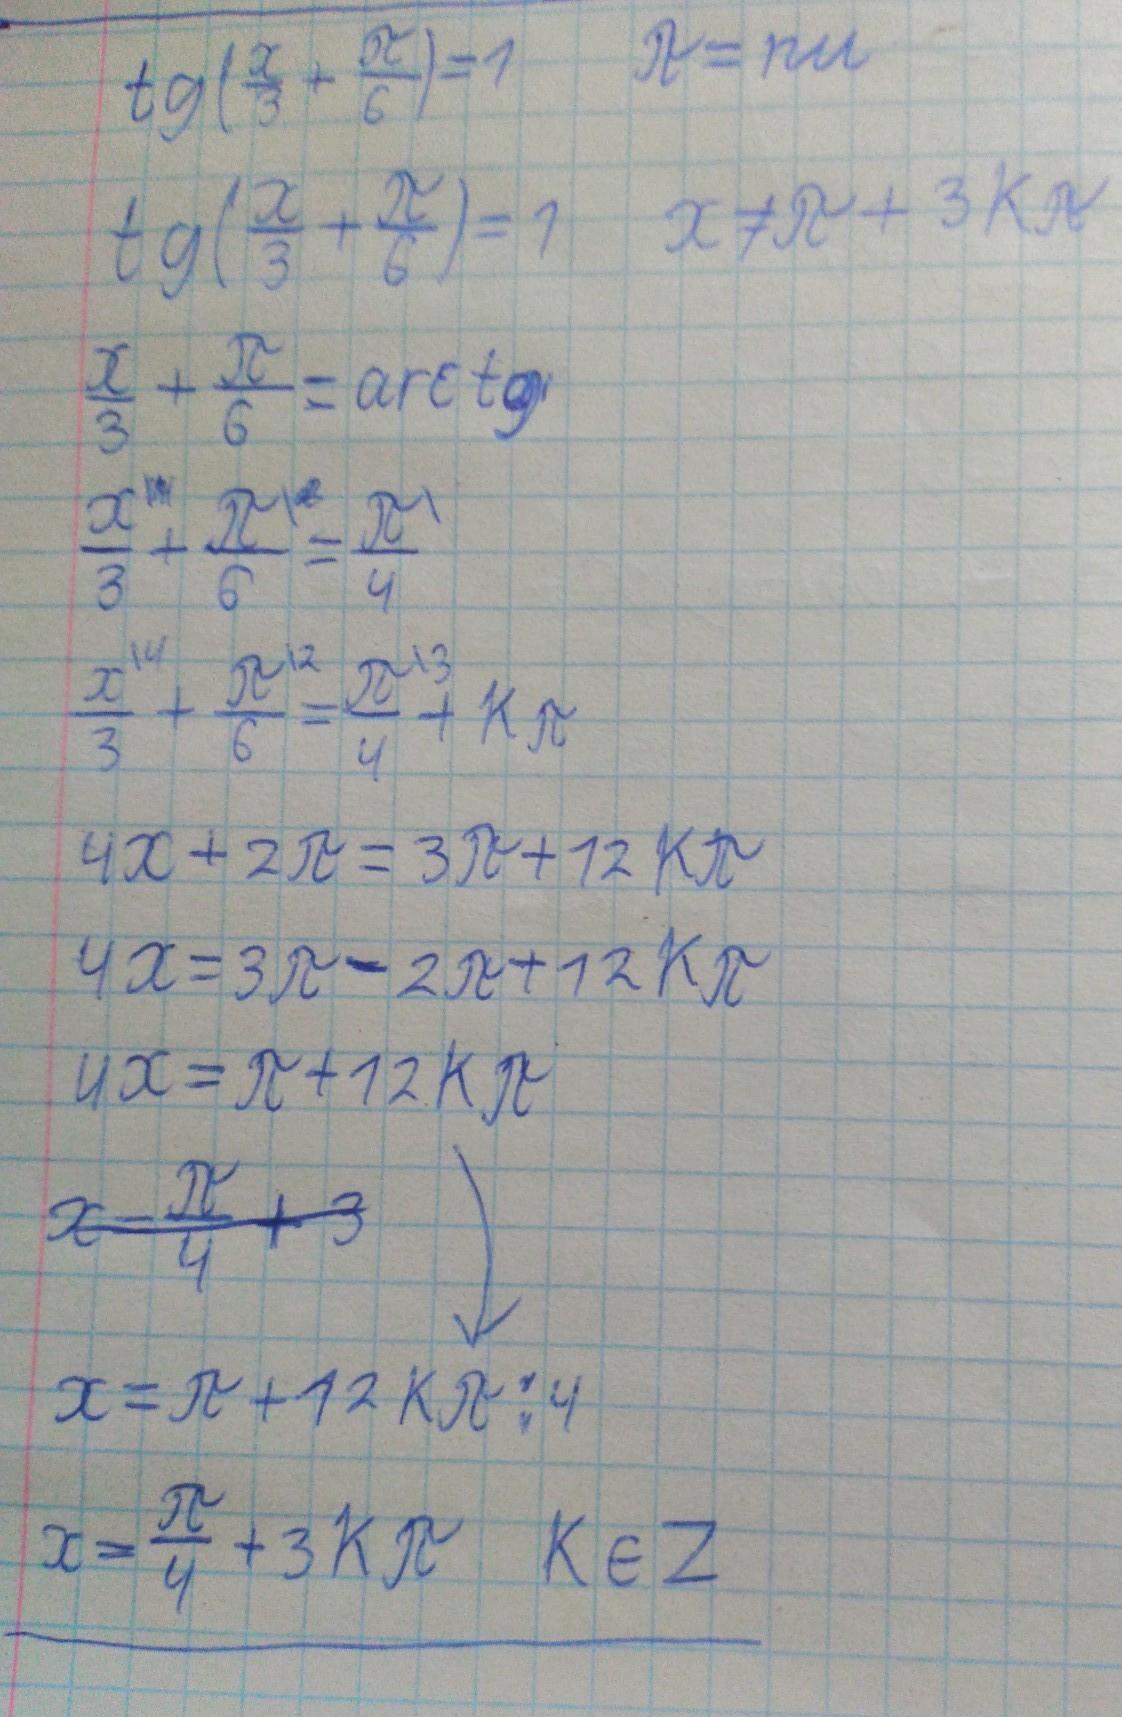 tg(x/3 + π/6) = 1 π = пи
tg(x/3 + π/6) = 1 x ≠ π + 3Kπ
x/3 + π/6 = arctg
x/3 + π/6 = π/4
x\4/3 + π\2/6 = π\3/4 + Kπ
4x + 2π = 3π + 12Kπ
4x = 3π - 2π + 12Kπ
4x = π + 12Kπ
x = π/4 + 3
x = π + 12Kπ : 4
x = π/4 + 3Kπ K ∈ Z